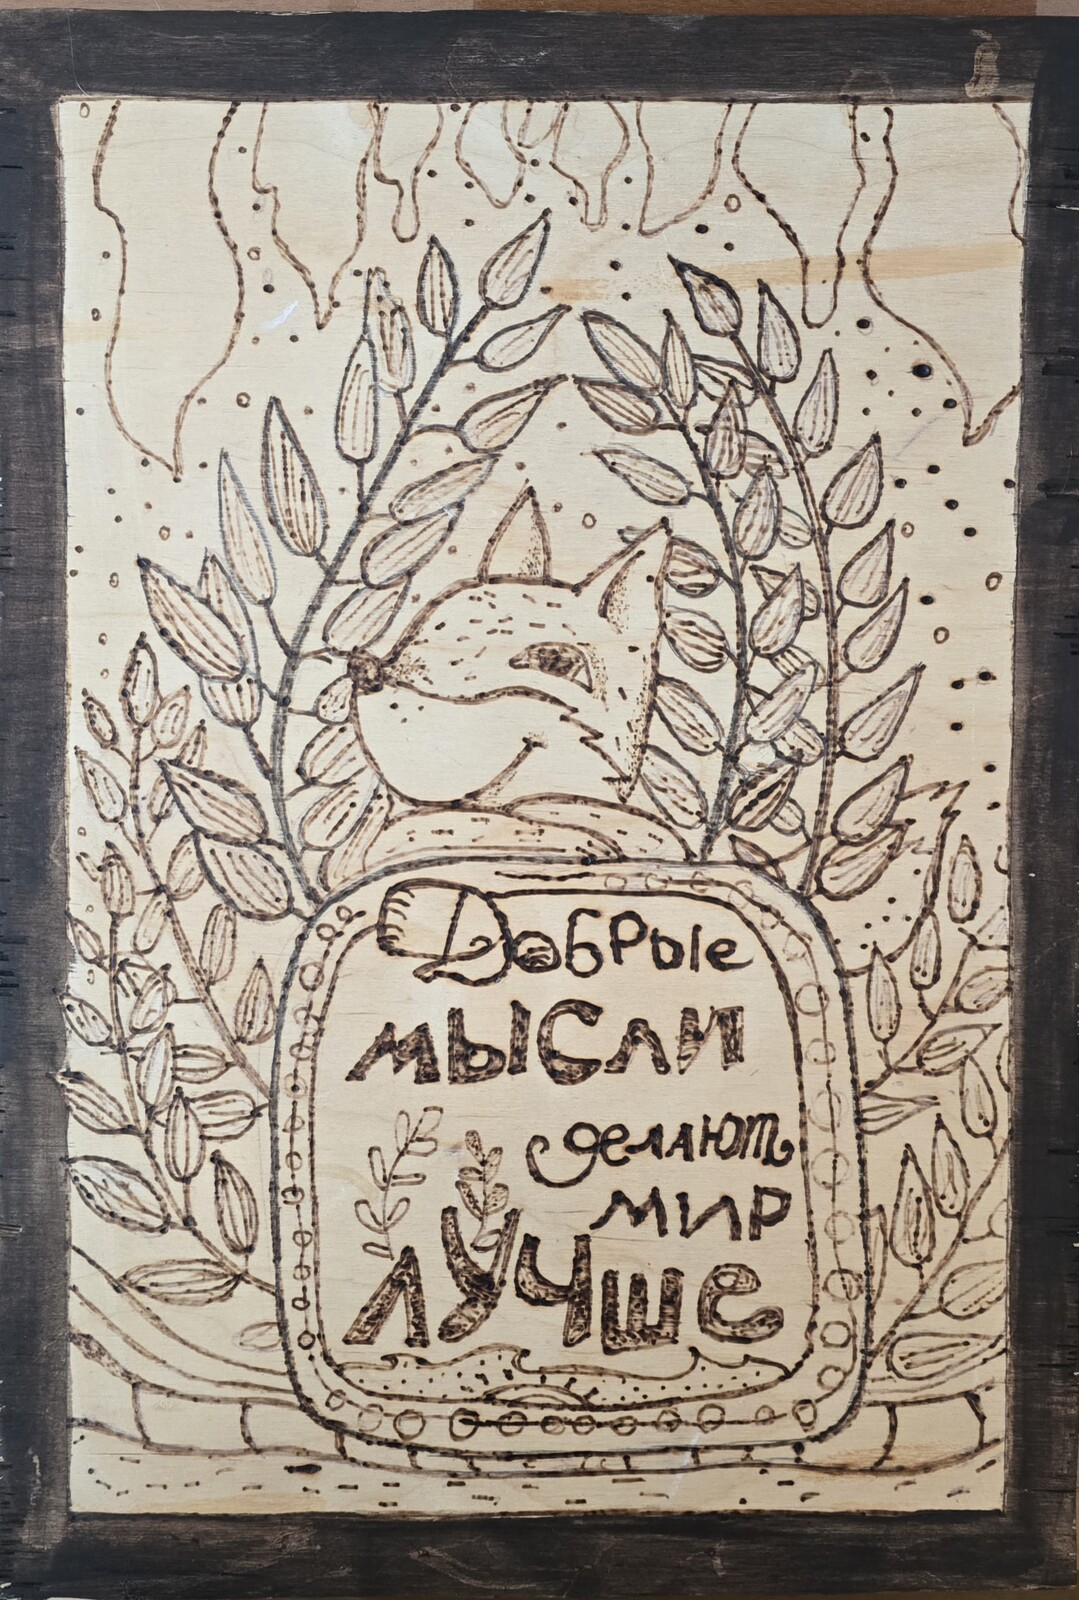 Добрые
мысли
делают
мир
лучше